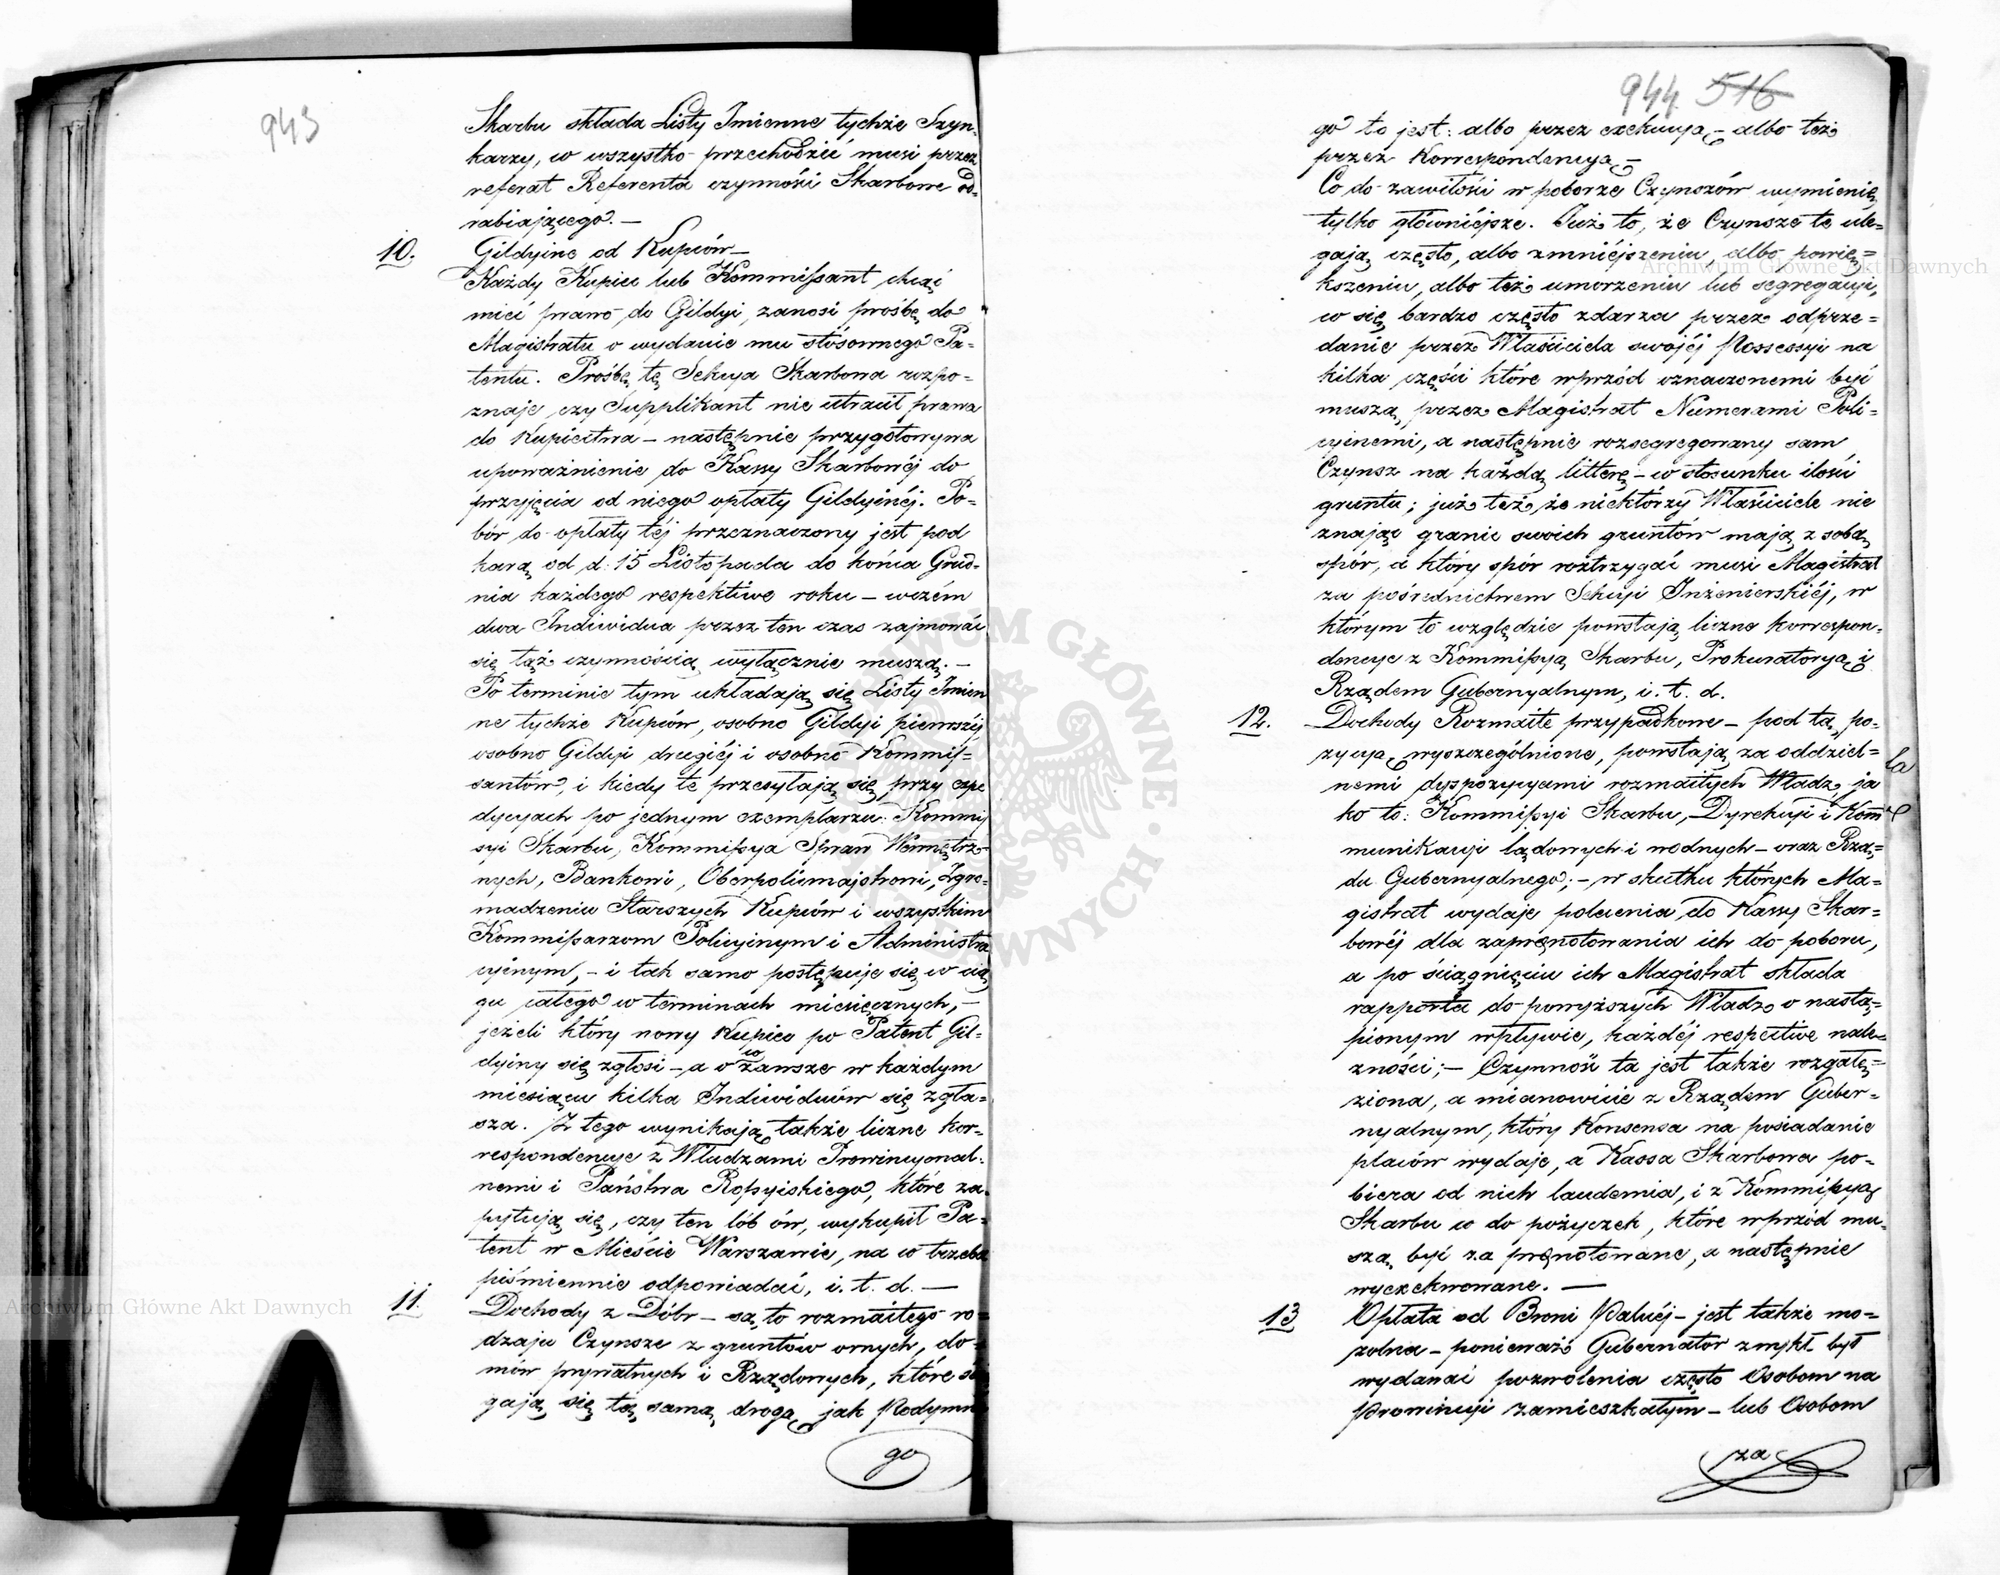 943
Skarbu składa Listy Imienne tychże Szyn-
karzy, co wszystko przechodzić musi przez
referat Referenta czynności Skarbowe od-
rabiającego. —
10. Gildyine od Kupców —
Każdy Kupiec lub Kommissant chcąć
mieć prawo do Gildyi, zanosi prośbę do
Magistratu o wydanie mu stósownego Pa-
tentu. Prośbę tę Sekcya Skarbowa rozpo-
znaje czy Supplikant nie utracił prawa
do Kupiectwa — następnie przygotowywa
upoważnienie do Kassy Skarbowéj do
przyjęcia od niego opłaty Gildyinéj. Po-
bór do opłaty téj przeznaczony jest pod
karą od d: 15 Listopada do końca Grud-
nia każdego respektive roku — wczém
dwa Individua przez ten czas zajmować
się tąż czynnością wyłącznie muszą. —
Po terminie tym układają się Listy Imien
ne tychże Kupców, osobno Gildyi pierwszéj
osobno Gildyi drugiéj i osobno Kommis-
santów, i kiedy te przesyłają się przy expe
dycyach po jednym exemplarzu: Kommis
syi Skarbu, Kommissya Spraw Wewnętrz-
nych, Bankowi, Oberpolicmajstrowi, Zgro-
madzeniu Starszych Kupców i wszystkim
Kommissarzom Policyinym i Administra
cyinym, — i tak samo postępuje się w cią
gu całego w terminach miesięcznych, —
jeżeli który nowy Kupiec po Patent Gil-
dyiny się zgłosi — a co zawsze w każdym
miesiącu kilka Individuów się zgła-
sza. Z tego wynikają także liczne kor-
respondencye z Władzami Prowincyonal-
nemi i Państwa Rossyiskiego, które za-
pytują się, czy ten lób ów, wykupił Pa-
tent w Mieście Warszawie, na co trzeba
piśmiennie odpowiadać, i. t. d. —
11. Dochody z Dóbr — są to rozmaitego ro-
dzaju Czynsze z gruntów ornych, do-
mów prywatnych i Rządowych, które ścią
gają się tą samą drogą jak Podymne
go
944 516
go to jest: albo przez exekucyą — albo też
przez Korrespondencyą —
Co do zawiłości w poborze Czynszów wymienię
tylko główniéjsze. Już to, że Czynsze te ule-
gają często, albo zmniéjszeniu, albo powię-
kszeniu, albo też umorzeniu lub segregacyi,
co się bardzo często zdarza przez odprze-
danie przez Właściciela swojéj Possessyi na
kilka części które wprzód oznaczonemi być
muszą przez Magistrat Numerami Poli-
cyinemi, a następnie rozsegregowany sam
Czynsz na każdą litterę — w stosunku ilości
gruntu; już też, że niektórzy Właściciele nie
znając granic swoich gruntów mają z sobą
spór, a który spór roztrzygać musi Magistrat
za pośrednictwem Sekcyi Inżenierskiéj, w
którym to względzie powstają liczne korrespon-
dencye z Kommissyą Skarbu, Prokuratoryą i
Rządem Gubernyalnym, i. t. d.
12. Dochody Rozmaite przypadkowe — pod tą po-
zycyą wyszczególnione, powstają za oddziel-
nemi dyspozycyami rozmaitych Władz, ja
ko to: Kommissyi Skarbu, Dyrekcyi i Kom
munikacyi lądowych i wodnych — oraz Rzą-
du Gubernyalnego; — w skutku których Ma-
gistrat wydaje polecenia do Kassy Skar-
bowéj dla zaprenotowania ich do poboru,
a po ściągnięciu ich Magistrat składa
rapporta do powyższych Władz o nastą-
pionym wpływie, każdéj respective nale-
zności; — Czynność ta jest także rozgałę-
ziona, a mianowicie z Rządem Guber-
nyalnym, który Konsensa na posiadanie
placów wydaje, a Kassa Skarbowa po-
biera od nich laudemia, i z Kommissyą
Skarbu co do pożyczek, które wprzód mu-
szą być za prenotowane, a następnie
wyexekwowane. —
13 Opłata od Broni Palnéj — jest także mo-
zolna — ponieważ Gubernator zwykł był
wydawać pozwolenia często Osobom na
Prowincyi zamieszkałym — lub Osobom
za
Archiwum Główne Akt Dawnych
Archiwum Główne Akt Dawnych
ARCHIWUM GŁÓWNE AKT DAWNYCH